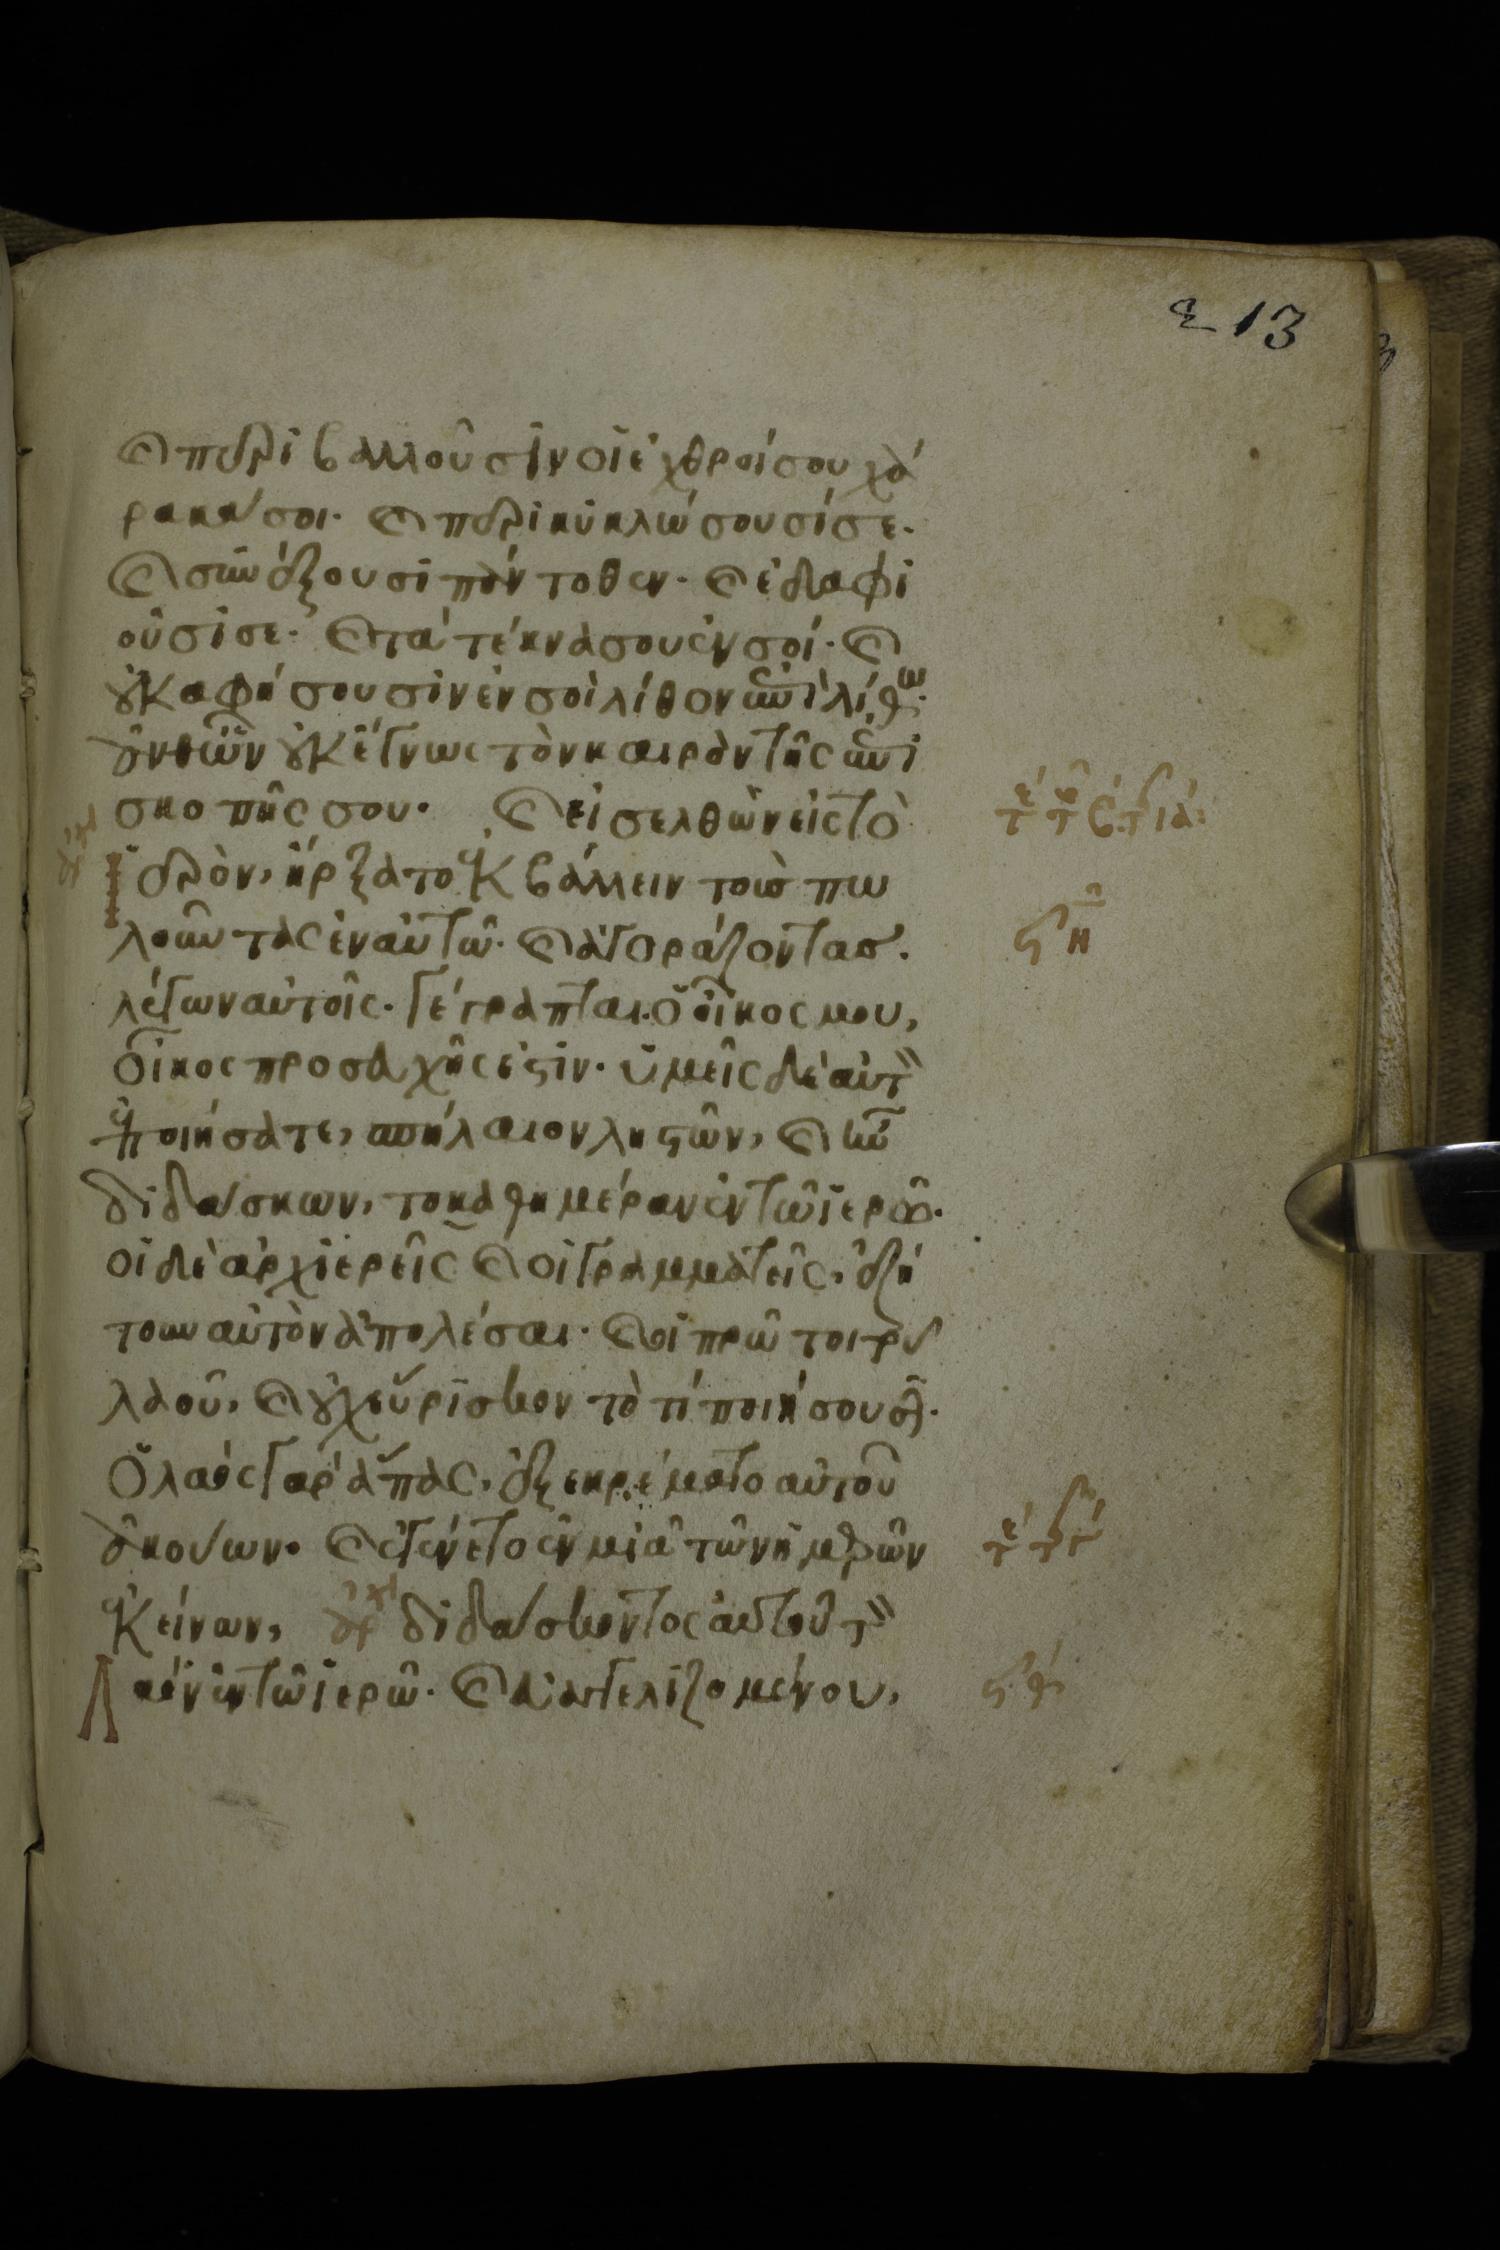 213
καὶ περιβαλλοῦσιν οἱ ἐχθροί σου χά
ρακά σοι· καὶ περικυκλώσουσί σε·
καὶ συνέξουσι πάντοθεν· καὶ ἐδαφι
οῦσί σε· καὶ τὰ τέκνα σου ἐν σοί· καὶ
οὐκ αφήσουσιν ἐν σοὶ λίθον ἐπὶ λίθω·
ἀνθῶν οὐκ ἔγνως τὸν καιρὸν τῆς ἐπι
σκοπῆς σου· καὶ εἰσελθὼν εἰς τὸ
ἱερὸν, ἤρξατο ἐκβάλλειν τοὺσ πω
λοῦντας ἐν αὐτῶ· καὶ ἀγοράζοντασ·
λέγων αὐτοῖς· γέγραπται· ὁ οἶκος μου,
οἶκος προσευχῆς ἐστιν· ὑμεῖς δὲ αὐτ
ἐποιήσατε, σπήλαιον ληστῶν, καὶ ἦν
διδάσκων, το καθημέραν ἐν τῶ ἱερῶ·
οἱ δὲ ἀρχιερεῖς καὶ οἱ γραμματεῖς, ἐζή
τουν αὐτὸν ἀπολέσαι· καὶ οἱ πρῶτοι τοῦ
λαοῦ, καὶ οὐχ εὕρισκον τὸ τί ποιήσουσιν·
Ὁ λαὸς γὰρ ἅπας, ἐξεκρέματο αὐτοῦ
ἀκούων· καὶ ἐγένετο ἐν μιᾶ τῶν ἡμερῶν
ἐκείνων, διδάσκοντος αὐτοῦ τ
λαὸν ἐν τῶ ἱερῶ· καὶ εὐαγγελιζομένου,